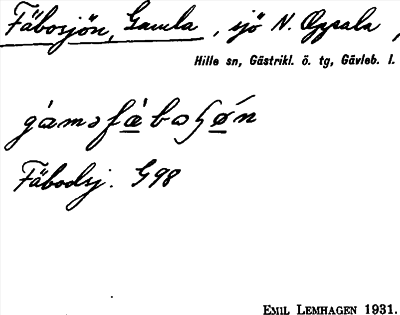 Fäbosjön, Gamla, sjö N. Oppala,
Hille sn, Gästrikl. ö. tg, Gävleb. l.
gàməfä̀bəʃǿn
Fäbodsj. G98
EMIL LEMHAGEN 1931.